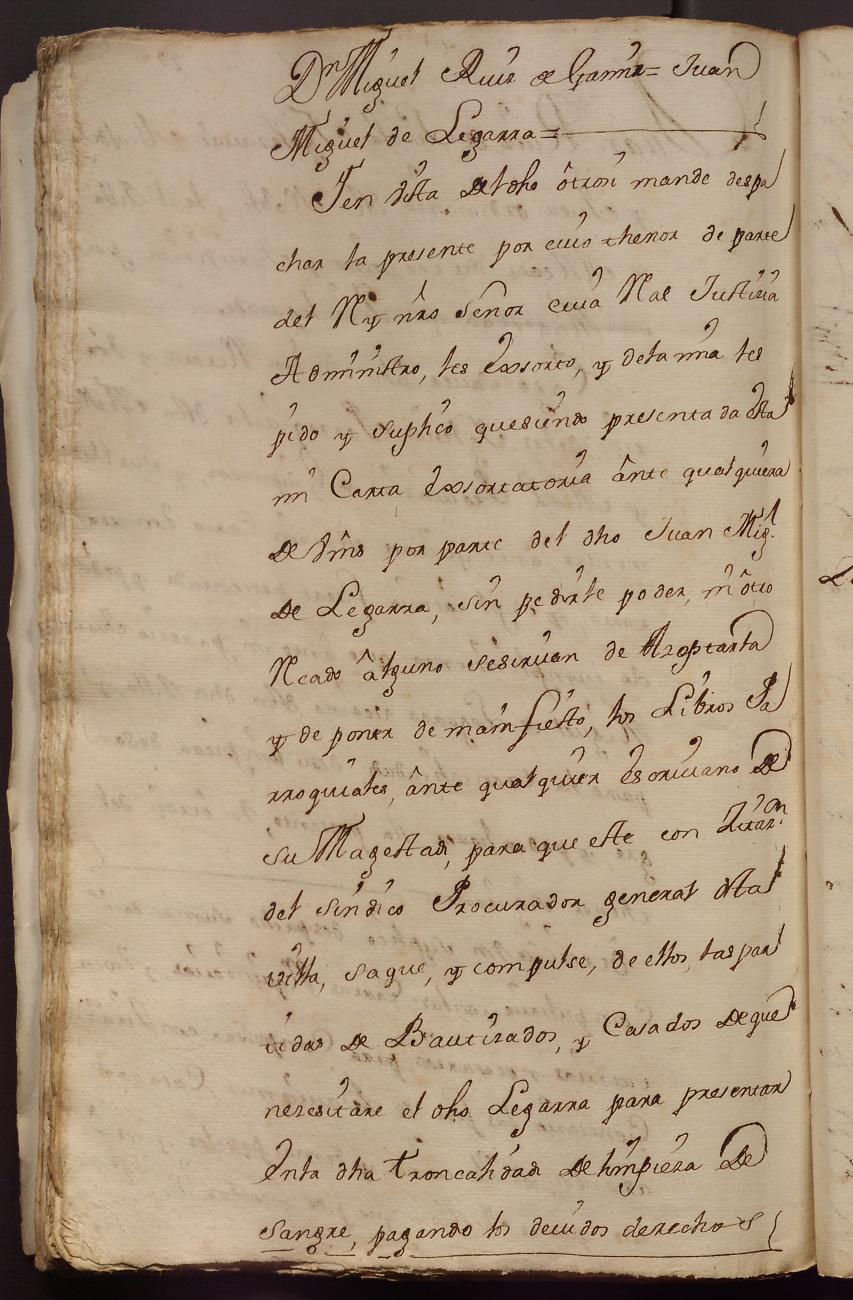 Dn Miguel Ruiz de Gamiz= Juan
Miguel de Legarra=
I en vista del dho ôtrosi mande despa
char la presente por cuio thenor de parte
del Rl y nro señor cuia Ral Justizia
Administro, les êxsorto, y de la mia les
pido y suplico que siendo presentada êsta
mi Carta êxsortatoria ânte qualquiera
de Vms por parte del dho Juan Migl.
de Legarra, sin pedirle poder, ni ôtro
Rcado âlguno se sirvan de Azeptarla
y de poner de manifiesto, los Libros Pa
rroquiales, ânte qualquier êscriuano de
su Magestad, para que este con Zitazn
del sindico Procurador general desta
villa, saque, y compulse, de ellos, las par
tidas de Bautizados, y Casados de que
nezesitare el dho Legarra para presentar
ên la dha troncalidad de limpieza de
sangre, pagando los deuidos derechos